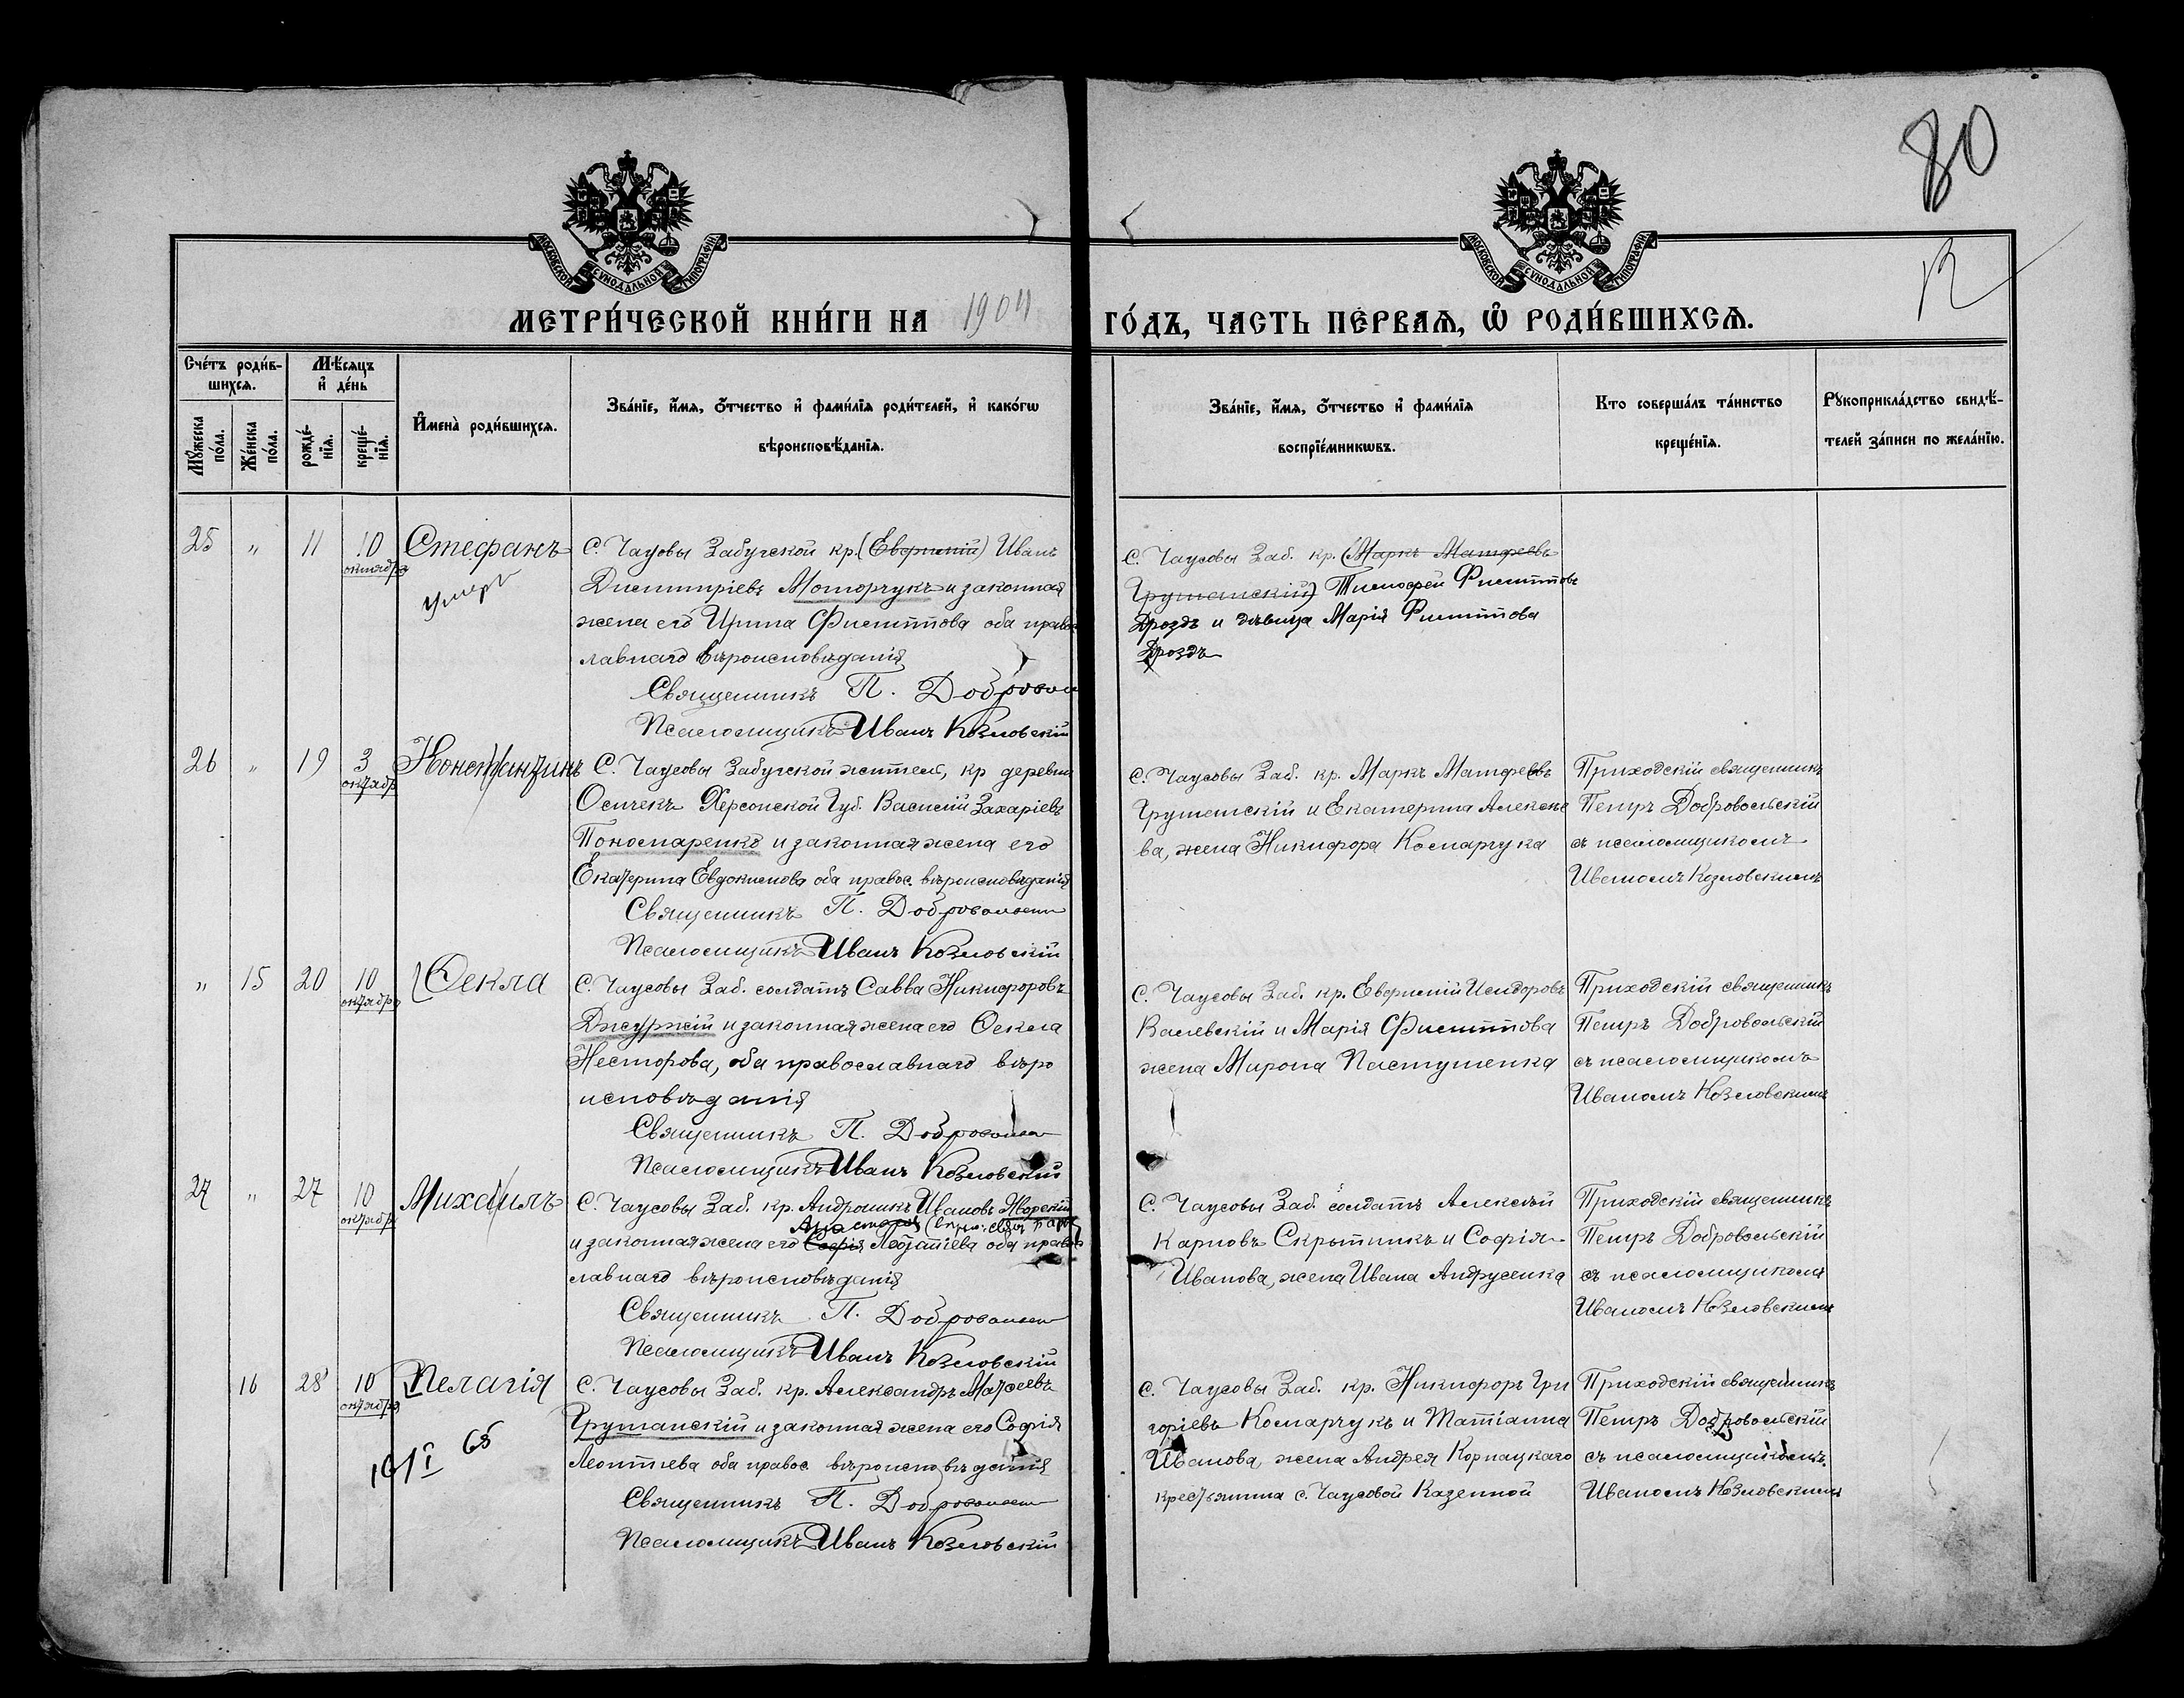 80
12
МОСКОВСКОЙ СѴНОДАЛЬНОЙ ТИПОГРАФІИ
МОСКОВСКОЙ СѴНОДАЛЬНОЙ ТИПОГРАФІИ
МЕТРИ́ЧЕСКОЙ КНИ́ГИ НА 1904 ГО́ДЪ, ЧАСТЬ ПЕ́РВАѦ, Ѡ҆ РОДИ́ВШИХСѦ.
Сче́тъ роди́в-
шихсѧ.
Мѣ́сяцъ
и҆ де́нь
Мꙋ́жеска
по́ла.
Же́нска
по́ла.
рожде́-
нїѧ.
креще́-
нїѧ.
И҆мена̀ роди́вшихсѧ.
Зва́нїе, и҆́мѧ, ѻ҆́тчество и҆ фами́лїѧ роди́телей, и҆ како́гѡ
вѣроисповѣ́данїѧ.
Зва́нїе, и҆́мѧ, ѻ҆́тчество и҆ фами́лїѧ
воспрїе́мникѡвъ.
Кто соверша́лъ та́инство
креще́нїѧ.
Рꙋкоприкла́дство свидѣ́-
телей за́писи по жела́нїю.
25 " 11 10 октября Стефанъ
умеръ
С. Чаусовы Забугской кр. (Евфимій) Иванъ
Димитріевъ Моторчукъ и законная
жена его Ирина Филиппова оба право
славнаго вѣроисповѣданія
Священникъ П. Добровол
Псаломщикъ Иванъ Козловскій
С. Чаусовы Заб. кр. (Маркъ Матфеевъ
Грушанскій) Тимофей Филипповъ
Дроздъ и дѣвица Марія Филиппова
Дроздъ
26 " 19 3 октябр Константинъ
С. Чаусовы Забугской житель, кр деревни
Осичекъ Херсонской Губ. Василій Захаріевъ
Пономаренко и законная жена его
Екатерина Евдокимова оба правос. вѣроисповѣданія
Священникъ П. Добровольскі
Псаломщикъ Иванъ Козловскій
С. Чаусовы Заб. кр. Маркъ Матфеевъ
Грушанскій и Екатерина Алексѣе
ва, жена Никифора Комарчука
Приходскій священникъ
Петръ Добровольскій
съ псаломщикомъ
Иваномъ Козловскимъ
" 15 20 10 октября Ѳекла
С. Чаусовы Заб. солдатъ Савва Никифоровъ
Джуржій и законная жена его Ѳекла
Несторова, оба православнаго вѣро
исповѣданія
Священникъ П. Добровольск
Псаломщикъ Иванъ Козловскій
С. Чаусовы Заб. кр. Евфимій Исидоровъ
Валевскій и Марія Филиппова
жена Мирона Пастушенка
Приходскій священникъ
Петръ Добровольскій
съ псаломщикомъ
Иваномъ Козловскимъ
27 " 27 10 октябр Михаилъ
С. Чаусовы Заб. кр. Андроникъ Ивановъ Яворскій
и законная жена его Софія Анастасія оба право
славнаго вѣроисповѣданія
Священникъ П. Добровольск
Псаломщикъ Иванъ Козловскій
С. Чаусовы Заб. солдатъ Алексѣй
Карповъ Скрыпникъ и Софія
Иванова, жена Ивана Андрусенка
Приходскій священникъ
Петръ Добровольскій
съ псаломщикомъ
Иваномъ Козловскимъ
16 28 10 октября Пелагія
С. Чаусовы Заб. кр. Александръ Матфеевъ
Грушанскій и законная жена его Софія
Леонтіева оба правос. вѣроисповѣданія
Священникъ П. Добровольск
Псаломщикъ Иванъ Козловскій
С. Чаусовы Заб. кр. Никифоръ Гри
горіевъ Комарчукъ и Татіанна
Иванова, жена Андрея Корнацкаго
крестьянина с. Чаусовой Казенной
Приходскій священникъ
Петръ Добровольскій
съ псаломщикомъ
Иваномъ Козловскимъ